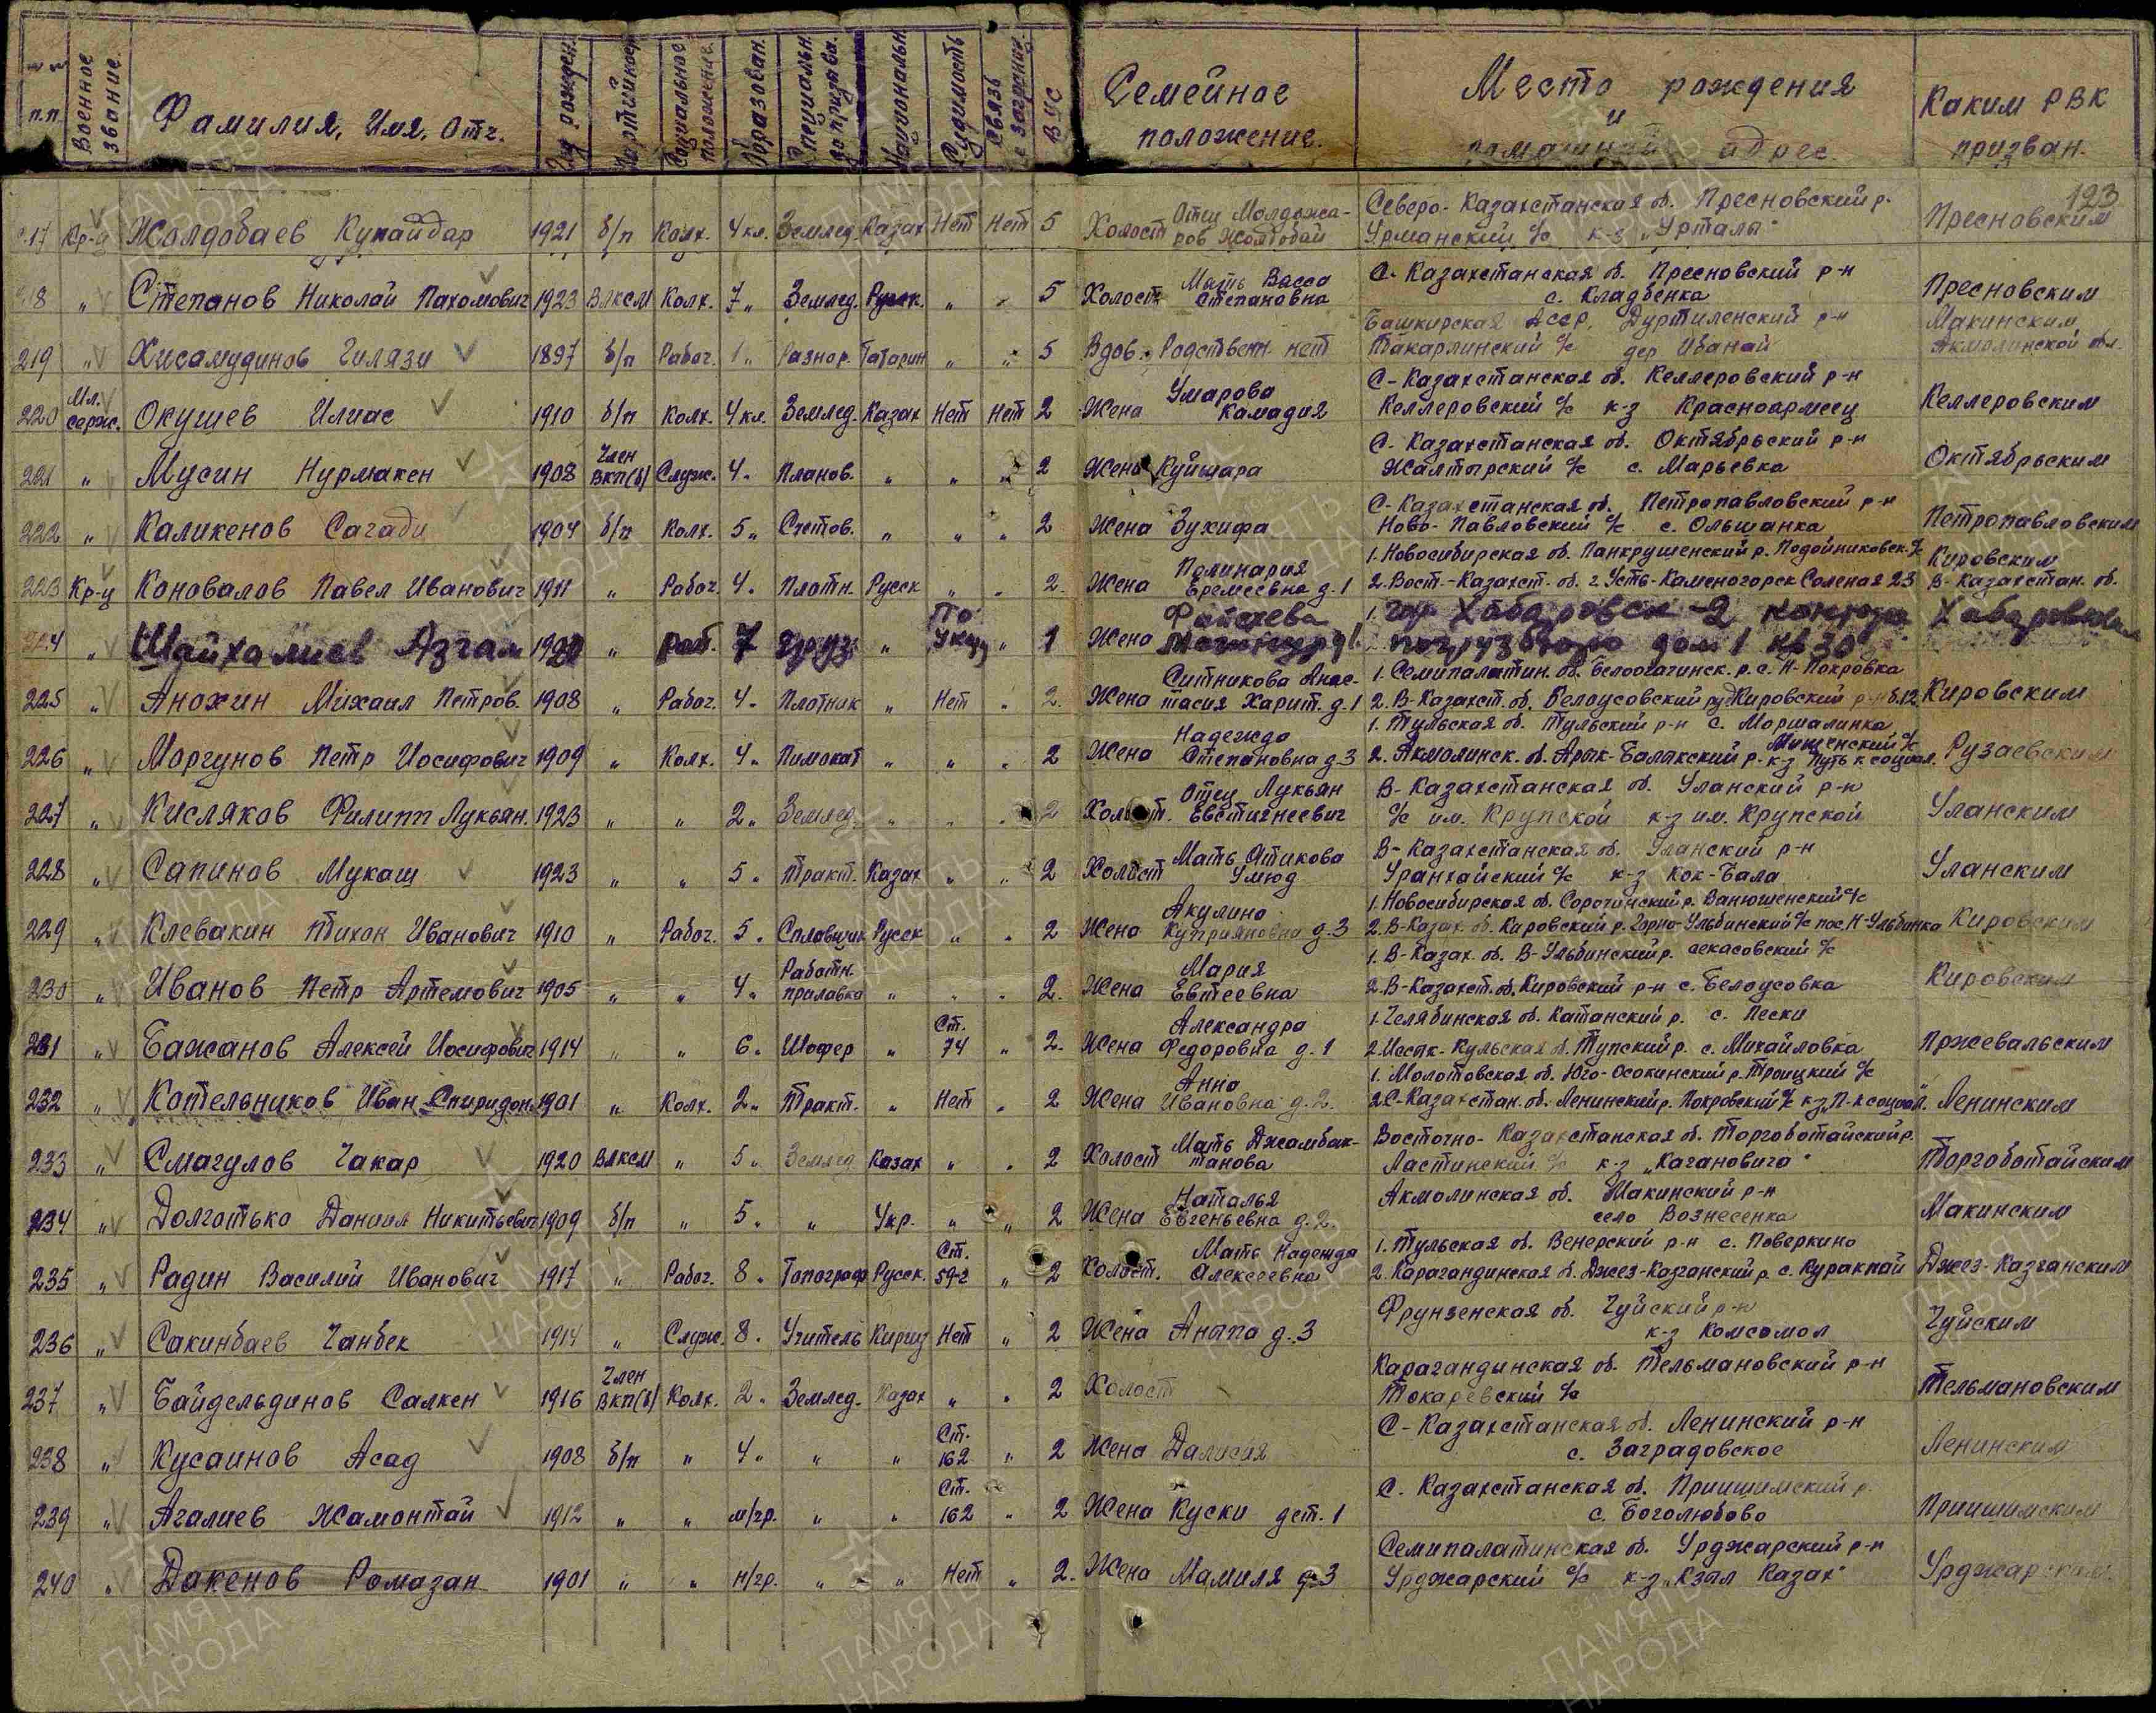 п.п. Военное звание. Фамилия, Имя, Отч. Год рожден. Партийност Социальное положение. Образован. Специальн. до призыва. Национальн Судимость Связь с заграниц. ВУС Семейное положение. Место рождения и домашний адрес. Каким РВК призван.
123
217 Кр-ц Жолдобаев Кунайдар 1921 б/п Колх. 4 кл. Землед. Казах Нет Нет 5 Холост Отец Молдожаров Жолдобай Северо-Казахстанская об. Пресновский р. Урманский с/с к-з „Урталы" Пресновским
218 „ Степанов Николай Пахомович 1923 ВЛКСМ Колх. 7 „ Землед. Русск. „ „ 5 Холост Мать Васса Степановна С. Казахстанская об. Пресновский р-н с. Кладбенка Пресновским
219 „ Хисамудинов Гилязи 1897 б/п Рабоч. 1 „ Разнор. Татарин „ „ 5 Вдов. Родствен. нет Башкирская АССР, Дуртиленский р-н Такарлинский с/с дер Иванай Макинским Акмолинской обл.
220 Мл. серж. Окушев Илиас 1910 б/п Колх. 4 кл. Землед. Казах Нет Нет 2 Жена Умарова Камадия С-Казахстанская об. Келлеровский р-н Келлеровский с/с к-з Красноармеец Келлеровским
221 „ Мусин Нурмакен 1908 Член ВКП(б) Служ. 4 „ Планов. „ „ „ 2 Жена Куйшара С-Казахстанская об. Октябрьский р-н Жалтырский с/с с. Марьевка Октябрьским
222 „ Каликенов Сагади 1904 б/п Колх. 5 „ Счетов. „ „ „ 2 Жена Зукифа С-Казахстанская об. Петропавловский р-н Ново-Павловский с/с с. Ольшанка Петропавловским
223 Кр-ц Коновалов Павел Иванович 1911 „ Рабоч. 4 „ Плотн. Русск „ „ 2. Жена Полинария Еремеевна д. 1 1. Новосибирская об. Панкрушенский р. Подойниковск. с/с 2. Вост.-Казахст. об. г. Усть-Каменогорск Соленая 23 Кировским В-Казахстан. об.
224 „ Шайхалиев Азгам „ раб. 7 груз. „ По указу „ 1 Жена 1. гор Хабаровск-2 дом 1 кв 30
225 „ Анохин Михаил Петров. 1908 „ Рабоч. 4 „ Плотник „ Нет „ 2. Жена Ситникова Анастасия Харит. д. 1 1. Семипалатин. об. Белоогачинск. р. с. Н-Покровка 2. В-Казахст. об. Белоусовский руд Кировский р-н б.12 Кировским
226 „ Моргунов Петр Иосифович 1909 „ Колх. 4 „ Пимокат „ „ „ 2 Жена Надежда Степановна д. 3 1. Тульская об. Тульский р-н с. Моршалинка 2. Акмолинск. об. Арык-Балыкский р- Мищенский с/с к-з Путь к социал. Рузаевским
227 „ Кисляков Филипп Лукьян. 1923 „ „ 2 „ Землед. „ „ „ 2 Холост. Отец Лукьян Евстигнеевич В-Казахстанская об. Уланский р-н с/с им. Крупской к-з им. Крупской Уланским
228 „ Сапинов Мукаш 1923 „ „ 5 „ Тракт. Казах „ „ 2 Холост Мать Атикова Умюд В-Казахстанская об. Уланский р-н Уранхайский с/с к-з Кок-Бала Уланским
229 „ Клевакин Тихон Иванович 1910 „ Рабоч. 5 „ Сплавщик Русск „ „ 2 Жена Акулина Куприяновна д. 3 1. Новосибирская об. Сорочинский р. Ванюшенский с/с 2. В-Казах. об. Кировский р. Горно-Ульбинский с/с пос. Н-Ульбинка Кировским
230 „ Иванов Петр Артемович 1905 „ „ 4 „ Работн. прилавка „ „ „ 2. Жена Мария Евтеевна 1. В-Казах. об. В-Ульбинский р. Секасовский с/с 2. В-Казахст. об. Кировский р-н с. Белоусовка Кировским
231 „ Бажанов Алексей Иосифович 1914 „ „ 6 „ Шофер „ Ст. 74 „ 2. Жена Александра Федоровна д. 1 1. Челябинская об. Катанский р. с. Пески 2. Иссык-Кульская об. Тупский р. с. Михайловка Пржевальским
232 „ Котельников Иван Спиридон. 1901 „ Колх. 2 „ Тракт. „ Нет „ 2 Жена Анна Ивановна д. 2. 1. Молотовская об. Юго-Осокинский р. Троицкий с/с 2. С-Казахстан. об. Ленинский р. Покровский с/с к-з „П-к социал". Ленинским
233 „ Смагулов Чакар 1920 ВЛКСМ „ 5 „ Землед Казах „ „ 2 Холост Мать Джамбактанова Восточно-Казахстанская об. Торгоботайский р. Ластинский с/с к-з „Кагановича" Торгоботайским
234 „ Долготько Даниил Никитьевич 1909 б/п „ 5 „ „ Укр. „ „ 2 Жена Наталья Евгеньевна д. 2. Акмолинская об. Макинский р-н село Вознесенка Макинским
235 „ Радин Василий Иванович 1917 „ Рабоч. 8 „ Топограф Русск. Ст. 59-2 „ 2 Холост. Мать Надежда Алексеевна 1. Тульская об. Венерский р-н с. Поверкино 2. Карагандинская об. Джез-Казганский р. с. Куракпай Джез-Казганским
236 „ Сакинбаев Чанбек 1914 „ Служ. 8 „ Учитель Киргиз Нет „ 2 Жена Аныпа д. 3 Фрунзенская об. Чуйский р-н к-з Комсомол Чуйским
237 „ Байдельдинов Салкен 1916 Член ВКП(б) Колх. 2 „ Землед. Казах „ „ 2 Холост Карагандинская об. Тельмановский р-н Токаревский с/с Тельмановским
238 „ Кусаинов Асад 1908 б/п „ 4 „ „ „ Ст. 162 „ 2 Жена Далисия С-Казахстанская об. Ленинский р-н с. Заградовское Ленинским
239 „ Агалиев Жамонтай 1912 „ „ м/гр. „ „ Ст. 162 „ 2 Жена Куски дет. 1 С. Казахстанская об. Приишимский р. с. Боголюбово Приишимским
240 „ Дакенов Ромазан 1901 „ „ н/гр. „ „ Нет „ 2. Жена Мамиля д. 3 Семипалатинская об. Урджарский р-н Урджарский с/с к-з „Кзыл Казах" Урджарским
ПАМЯТЬ НАРОДА